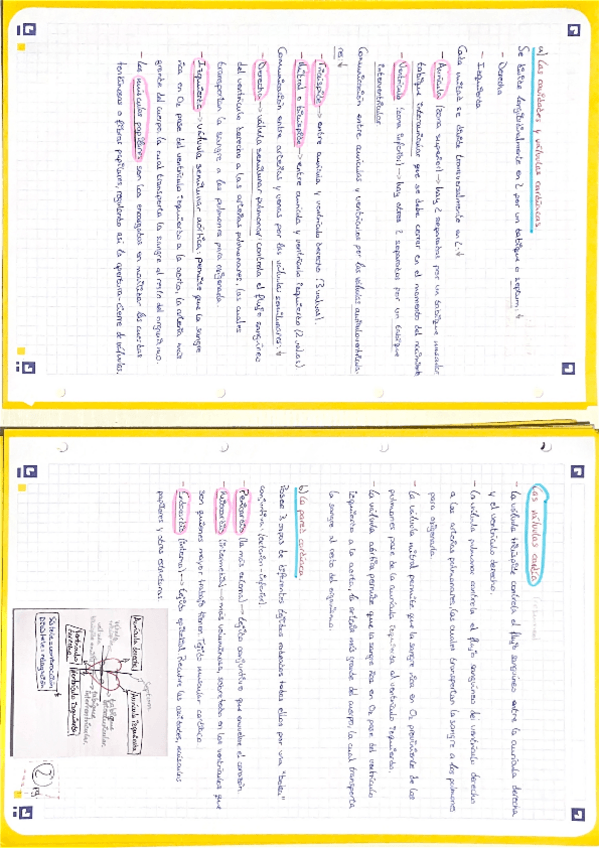 a) Las cavidades y válvulas cardíacas.
Se divide longitudinalmente en 2 por un tabique o septum: ↓
- Derecha
- Izquierda
Cada mitad se divide transversalmente en 2: ↓
- Aurícula (zona superior) → hay 2 separadas por un tabique
tabique interauricular que se debe cerrar en el momento del nacimiento
- Ventrículo (zona inferior) → hay otros 2 separados por un tabique
interventricular
Comunicación entre aurículas y ventrículos por las válvulas auriculoventricula-
res: ↓
- Tricúspide → entre aurícula y ventrículo derecho (3 valvas).
- Mitral o bicúspide → entre aurícula y ventrículo izquierdo (2 valvas).
Comunicación entre arterias y venas por las válvulas semilunares: ↓
- Derecha → válvula semilunar pulmonar: controla el flujo sanguíneo
del ventrículo derecho a las arterias pulmonares, las cuales
transportan la sangre a los pulmones para oxigenarla.
- Izquierda → válvula semilunar aórtica: permite que la sangre
rica en O₂ pase del ventrículo izquierdo a la aorta, la arteria más
grande del cuerpo, la cual transporta la sangre al resto del organismo.
- Los músculos papilares son los encargados en movilizar las cuerdas
tendinosas o fibras papilares, regulando así la apertura-cierre de válvulas.
Las válvulas
- La válvula tricúspide controla el flujo sanguíneo entre la aurícula derecha
y el ventrículo derecho.
- La válvula pulmonar controla el flujo sanguíneo del ventrículo derecho
a las arterias pulmonares, las cuales transportan la sangre a los pulmones
para oxigenarla.
- La válvula mitral permite que la sangre rica en O₂ proveniente de los
pulmones pase de la aurícula izquierda al ventrículo izquierdo.
- La válvula aórtica permite que la sangre rica en O₂ pase del ventrículo
izquierdo a la aorta, la arteria más grande del cuerpo, la cual transporta
la sangre al resto del organismo.
b) La pared cardíaca
Posee 3 capas de diferentes tejidos rodeadas todas ellas por una "bolsa"
conjuntiva: (exterior-interior)
- Pericardio (la más externa) → tejido conjuntivo que envuelve el corazón.
- Miocardio (intermedia) → más voluminosa sobre todo en los ventrículos que
son quienes mayor trabajo tienen. Tejido muscular cardíaco.
- Endocardio (interna) → tejido epitelial. Recubre las cavidades, músculos
papilares y otras estructuras.
Septum
Aurícula derecha
Aurícula izquierda
tabique
interauricular
tabique
interventricular
Ventrículo derecho
Ventrículo izquierdo
②